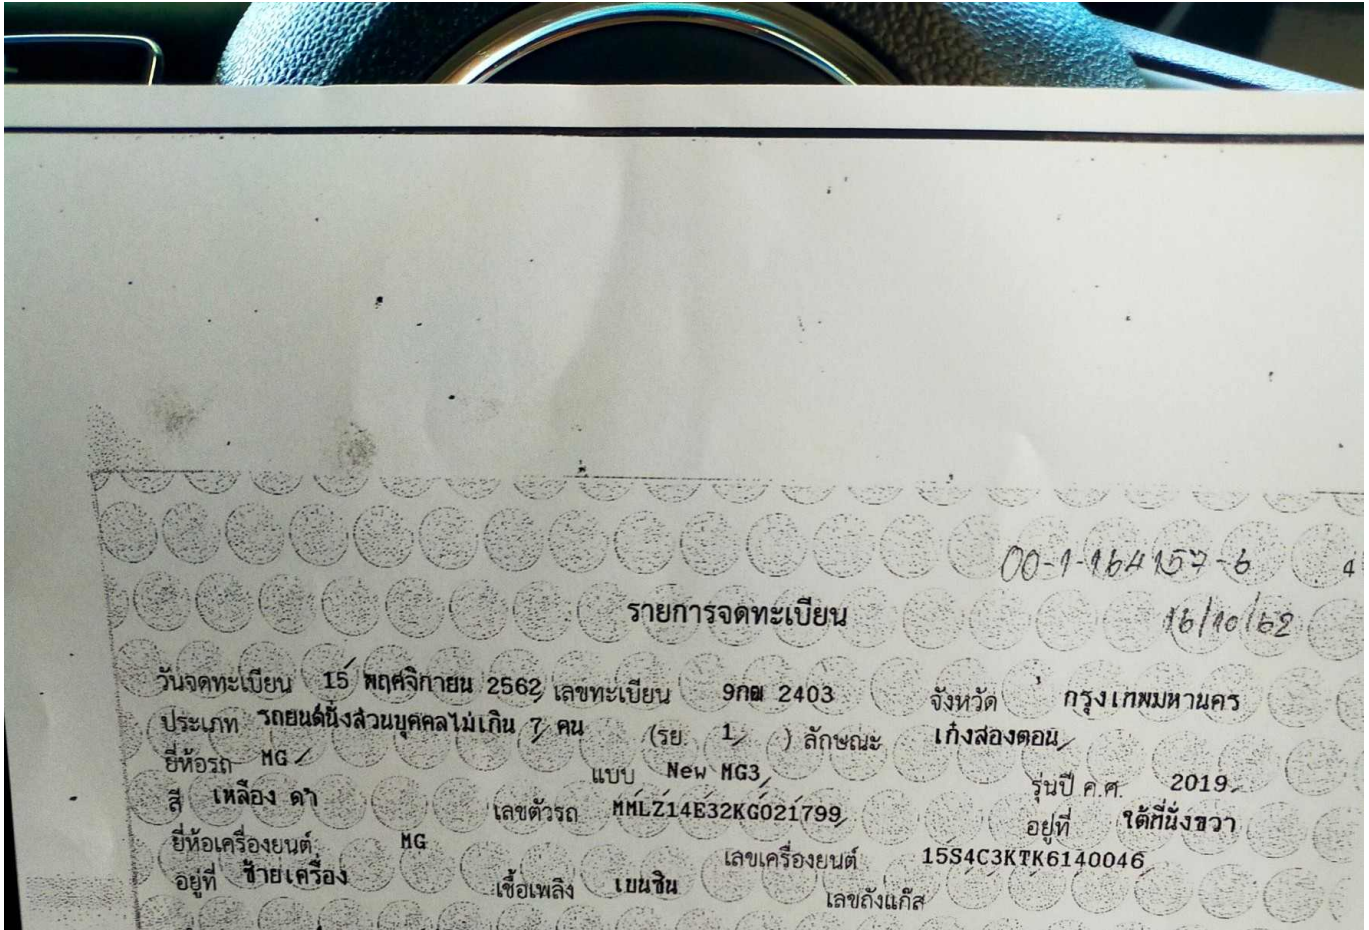 00-1-164157-6 4
รายการจดทะเบียน 16/10/62
วันจดทะเบียน 15 พฤศจิกายน 2562 เลขทะเบียน 9กฒ 2403 จังหวัด กรุงเทพมหานคร
ประเภท รถยนต์นั่งส่วนบุคคลไม่เกิน 7 คน (รย. 1 ) ลักษณะ เก๋งสองตอน
ยี่ห้อรถ MG แบบ New MG3 รุ่นปี ค.ศ. 2019
สี เหลือง ดำ เลขตัวรถ MMLZ14E32KG021799 อยู่ที่ ใต้ที่นั่งขวา
ยี่ห้อเครื่องยนต์ MG เลขเครื่องยนต์ 15S4C3KTK6140046
อยู่ที่ ซ้ายเครื่อง เชื้อเพลิง เบนซิน เลขถังแก๊ส